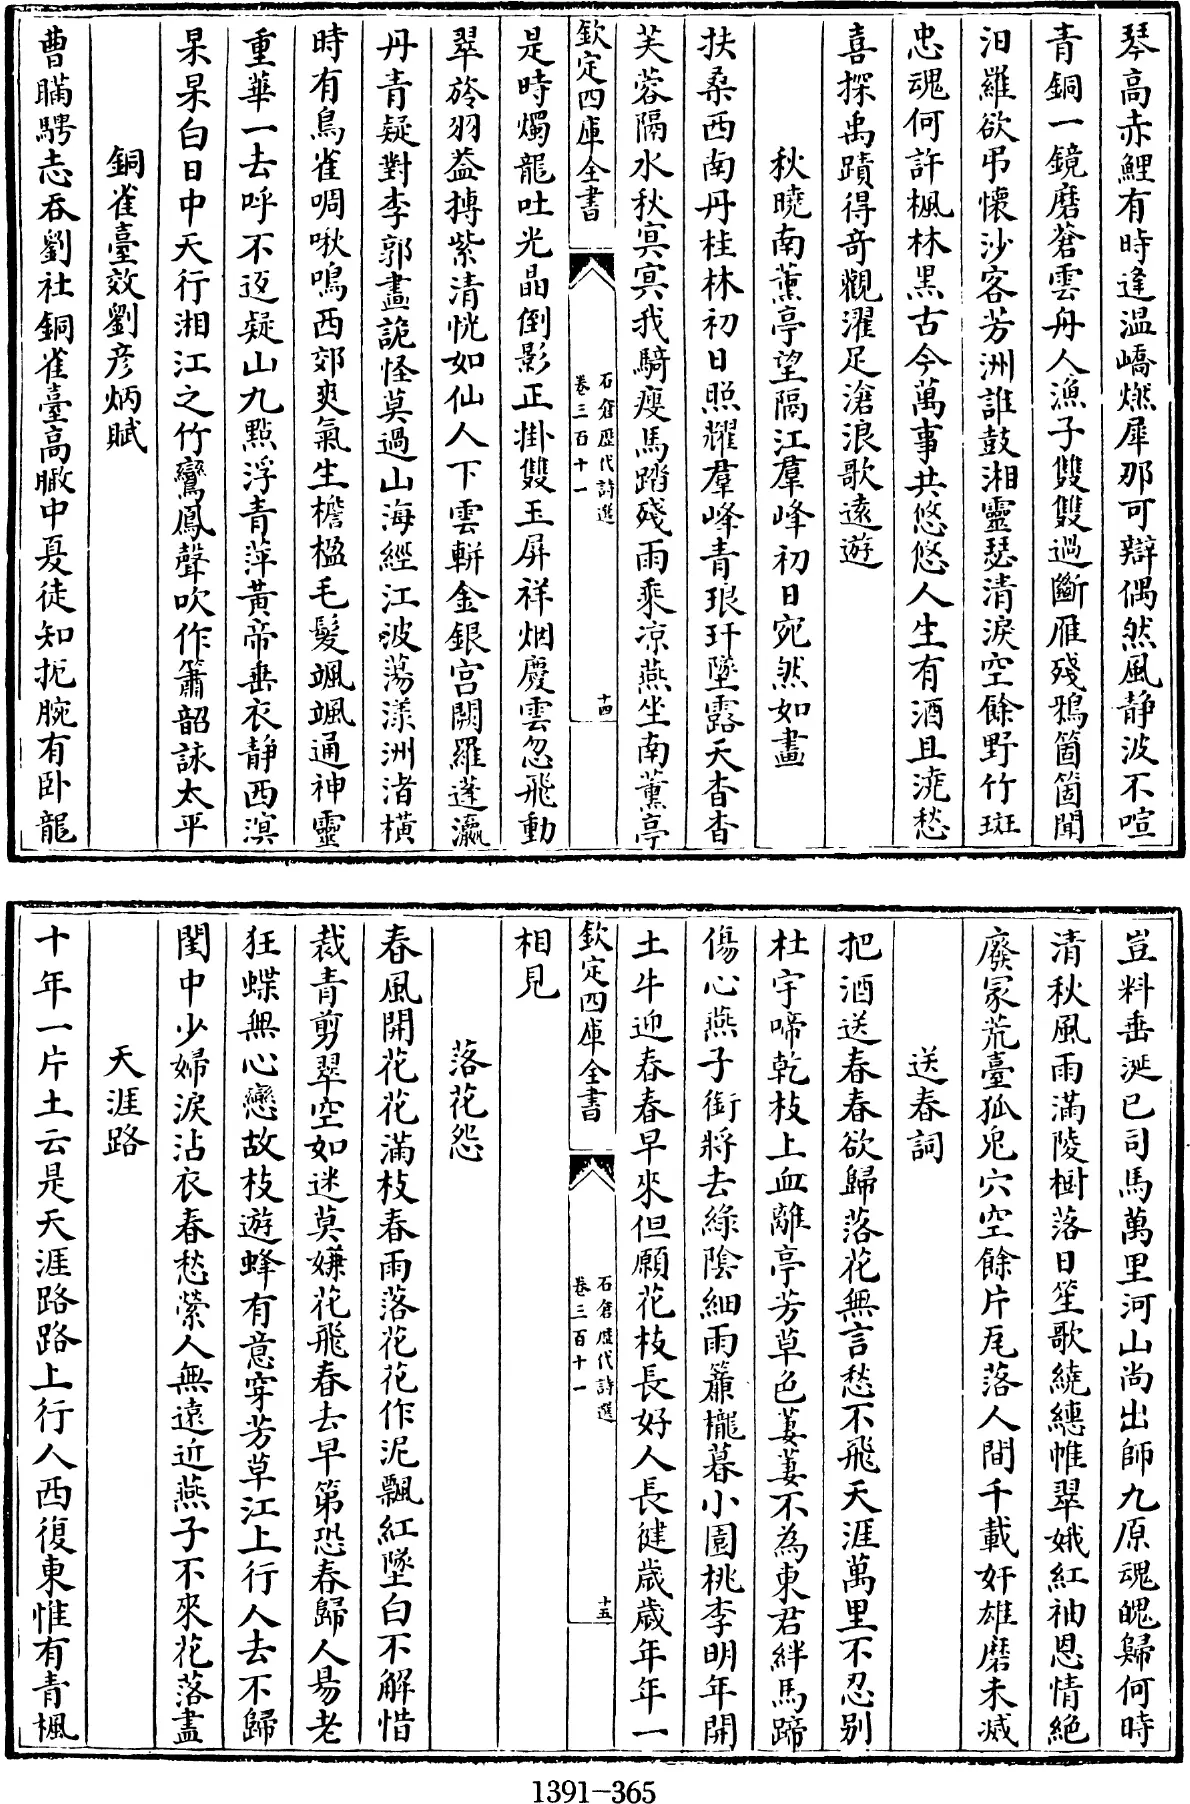 琴高赤鯉有時逢温嶠燃犀那可辯偶然風静波不喧
青銅一鏡磨蒼雲舟人漁子雙雙過斷雁殘鴉箇箇聞
汨羅欲弔懷沙客芳洲誰鼓湘靈瑟清淚空餘野竹斑
忠魂何許楓林黒古今萬事共悠悠人生有酒且澆愁
喜探禹蹟得竒觀濯足滄浪歌逺遊
秋曉南薰亭望隔江羣峰初日宛然如畫
扶桑西南丹桂林初日照耀羣峰青琅玕墜露天杳杳
芙蓉隔水秋㝠㝠我騎瘦馬踏殘雨乘凉燕坐南薰亭
欽定四庫全書
石倉歴代詩選
卷三百十一
十四
是時燭龍吐光晶倒影正掛雙玉屏祥烟慶雲忽飛動
翠旍羽葢摶紫清恍如仙人下雲軿金銀宫闕羅蓬瀛
丹青疑對李郭畫詭怪莫過山海經江波蕩漾洲渚橫
時有鳥雀啁啾鳴西郊爽氣生檐楹毛髪颯颯通神靈
重華一去呼不返疑山九點浮青萍黄帝垂衣静西溟
杲杲白日中天行湘江之竹鸞鳳聲吹作簫韶詠太平
銅雀臺效劉彦炳賦
曹瞞騁志吞劉社銅雀臺高瞰中夏徒知扼腕有卧龍
豈料垂涎已司馬萬里河山尚出師九原魂魄歸何時
清秋風雨滿陵樹落日笙歌繞繐帷翠娥紅袖恩情絶
廢冢荒臺狐兎穴空餘片瓦落人間千載奸雄磨未滅
送春詞
把酒送春春欲歸落花無言愁不飛天涯萬里不忍别
杜宇啼乾枝上血離亭芳草色萋萋不為東君絆馬蹄
傷心燕子銜將去綠陰細雨簾櫳暮小園桃李明年開
土牛迎春春早來但願花枝長好人長健歳歳年年一
欽定四庫全書
石倉歴代詩選
卷三百十一
十五
相見
落花怨
春風開花花滿枝春雨落花花作泥飄紅墜白不解惜
裁青剪翠空如迷莫嫌花飛春去早第恐春歸人易老
狂蝶無心戀故枝遊蜂有意穿芳草江上行人去不歸
閨中少婦淚沾衣春愁縈人無逺近燕子不來花落盡
天涯路
十年一片土云是天涯路路上行人西復東惟有青楓
1391-365